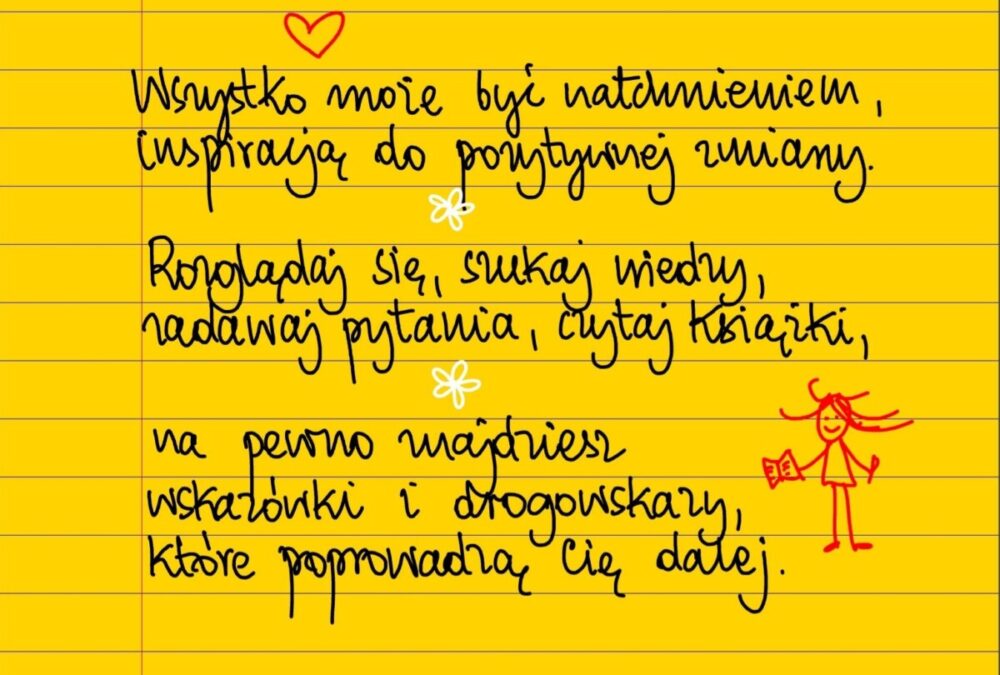 Wszystko może być natchnieniem,
inspiracją do pozytywnej zmiany.
Rozglądaj się, szukaj wiedzy,
zadawaj pytania, czytaj książki,
na pewno znajdziesz
wskazówki i drogowskazy,
które poprowadzą Cię dalej.